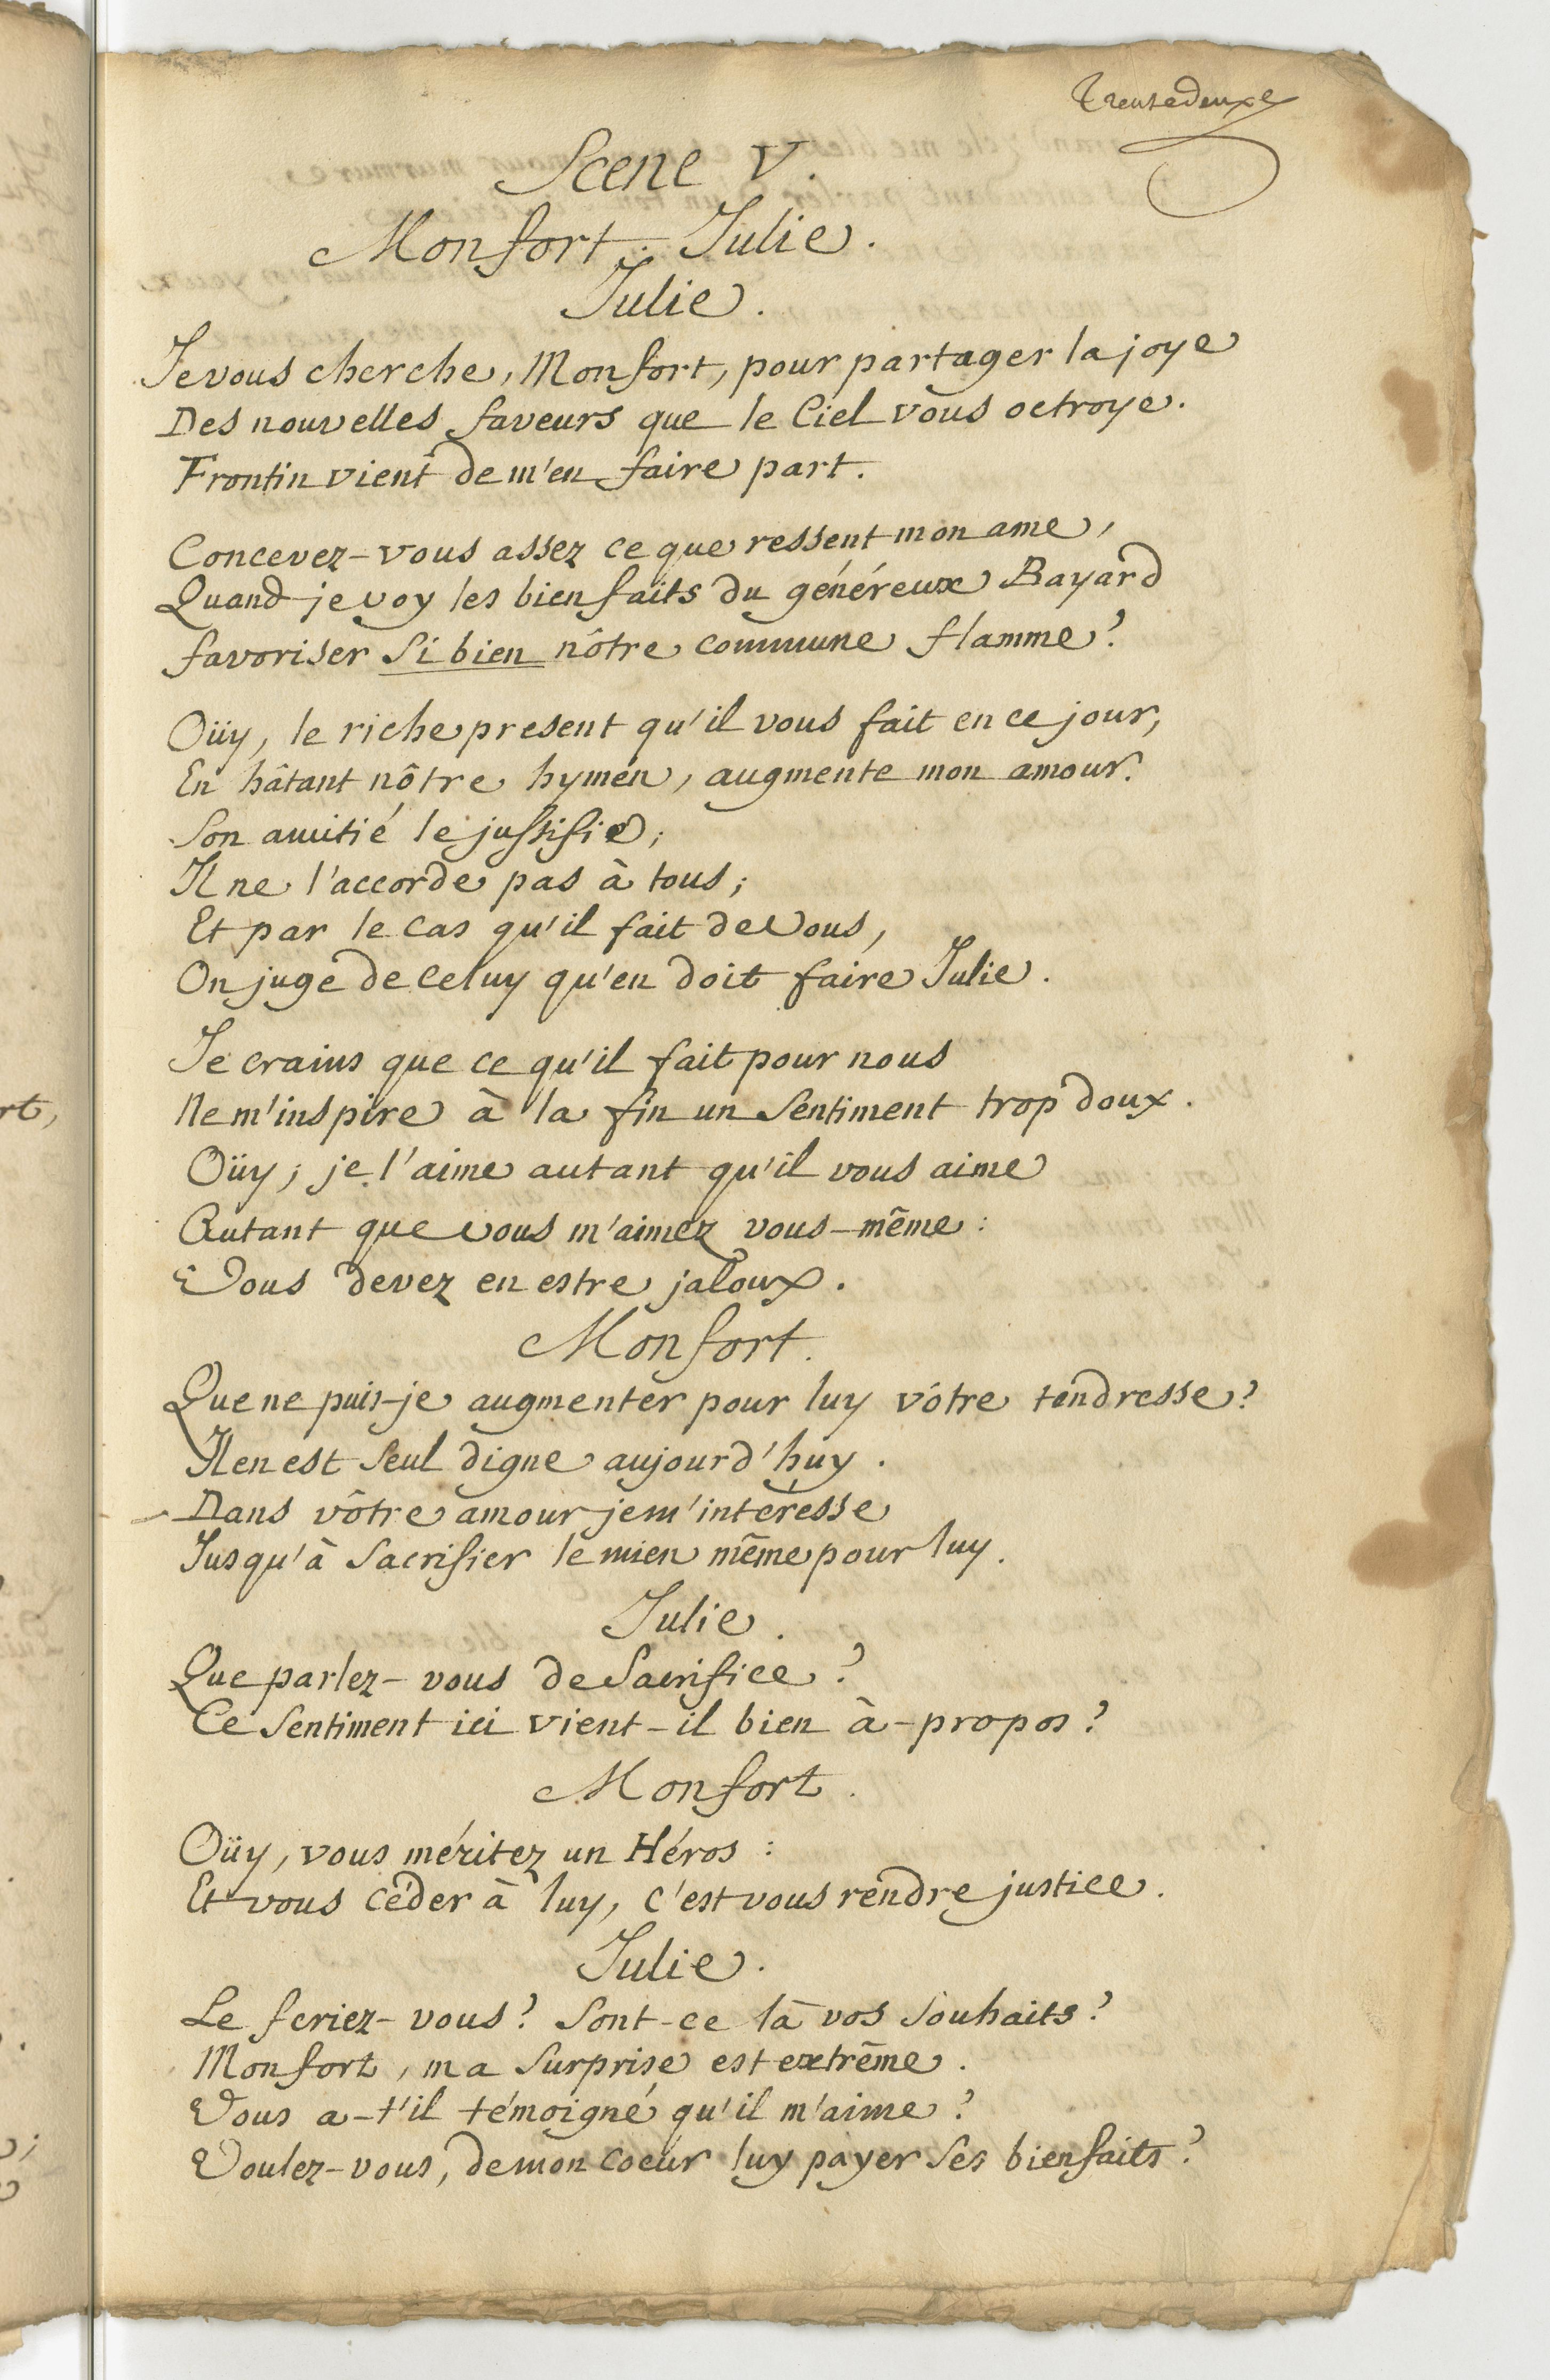 Trentedeuxe
Scene V.
Monfort. Julie.
Julie.
Je vous cherche, Monfort, pour partager la joye
Des nouvelles faveurs que le Ciel vous octroye.
Frontin vient de m'en faire part.
Concevez-vous assez ce que ressent mon ame,
Quand je voy les bienfaits du généreux Bayard
favoriser si bien nôtre commune flamme?
Oüy, le riche present qu'il vous fait en ce jour,
En hâtant nôtre hymen, augmente mon amour.
Son amitié le justifie;
Il ne l'accorde pas à tous;
Et par le cas qu'il fait de Vous,
On juge de celuy qu'en doit faire Julie.
Je crains que ce qu'il fait pour nous
Ne m'inspire à la fin un sentiment trop doux.
Oüy, je l'aime autant qu'il vous aime
Autant que vous m'aimez vous-même:
Vous devez en estre jaloux.
Monfort.
Que ne puis-je augmenter pour luy vôtre tendresse?
Il en est seul digne aujourd'huy.
Dans vôtre amour je m'intéresse
Jusqu'à sacrifier le mien même pour luy.
Julie.
Que parlez-vous de Sacrifice?
Ce sentiment ici vient-il bien à-propos?
Monfort.
Oüy, vous méritez un Héros:
Et vous céder à luy, c'est vous rendre justice.
Julie.
Le feriez-vous? Sont-ce là vos souhaits?
Monfort, ma surprise est extrême.
Vous a-t'il témoigné qu'il m'aime?
Voulez-vous, de mon coeur luy payer ses bienfaits?
rt,